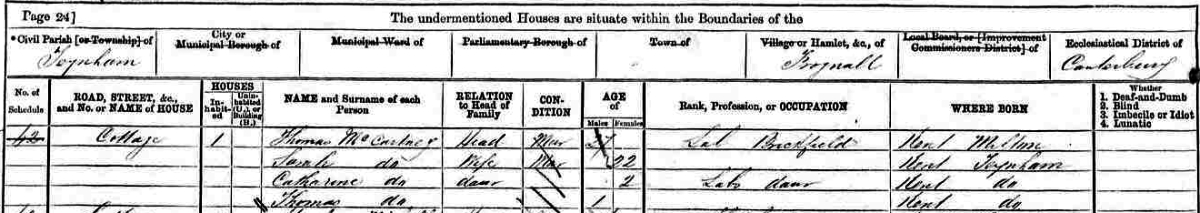 Page 24] The undermentioned Houses are situate within the Boundaries of the
*Civil Parish [or Township] of City or Municipal Borough of Municipal Ward of Parliamentary Borough of Town of Village or Hamlet, &c., of Local Board, or [Improvement Commissioners District] of Ecclesiastical District of
Teynham Frognall Canterbury
No. of Schedule ROAD, STREET, &c., and No. or NAME of HOUSE HOUSES Inhabited Uninhabited (U.), or Building (B.) NAME and Surname of each Person RELATION to Head of Family CONDITION AGE of Males Females Rank, Profession, or OCCUPATION WHERE BORN Whether
1. Deaf-and-Dumb
2. Blind
3. Imbecile or Idiot
4. Lunatic
42 Cottage 1 Thomas McCartney Head Mar 27 Lab Brickfield Kent Milton
Sarah do Wife Mar 22 Kent Teynham
Catharine do daur 2 Labs daur Kent do
Thomas do 1 Kent do